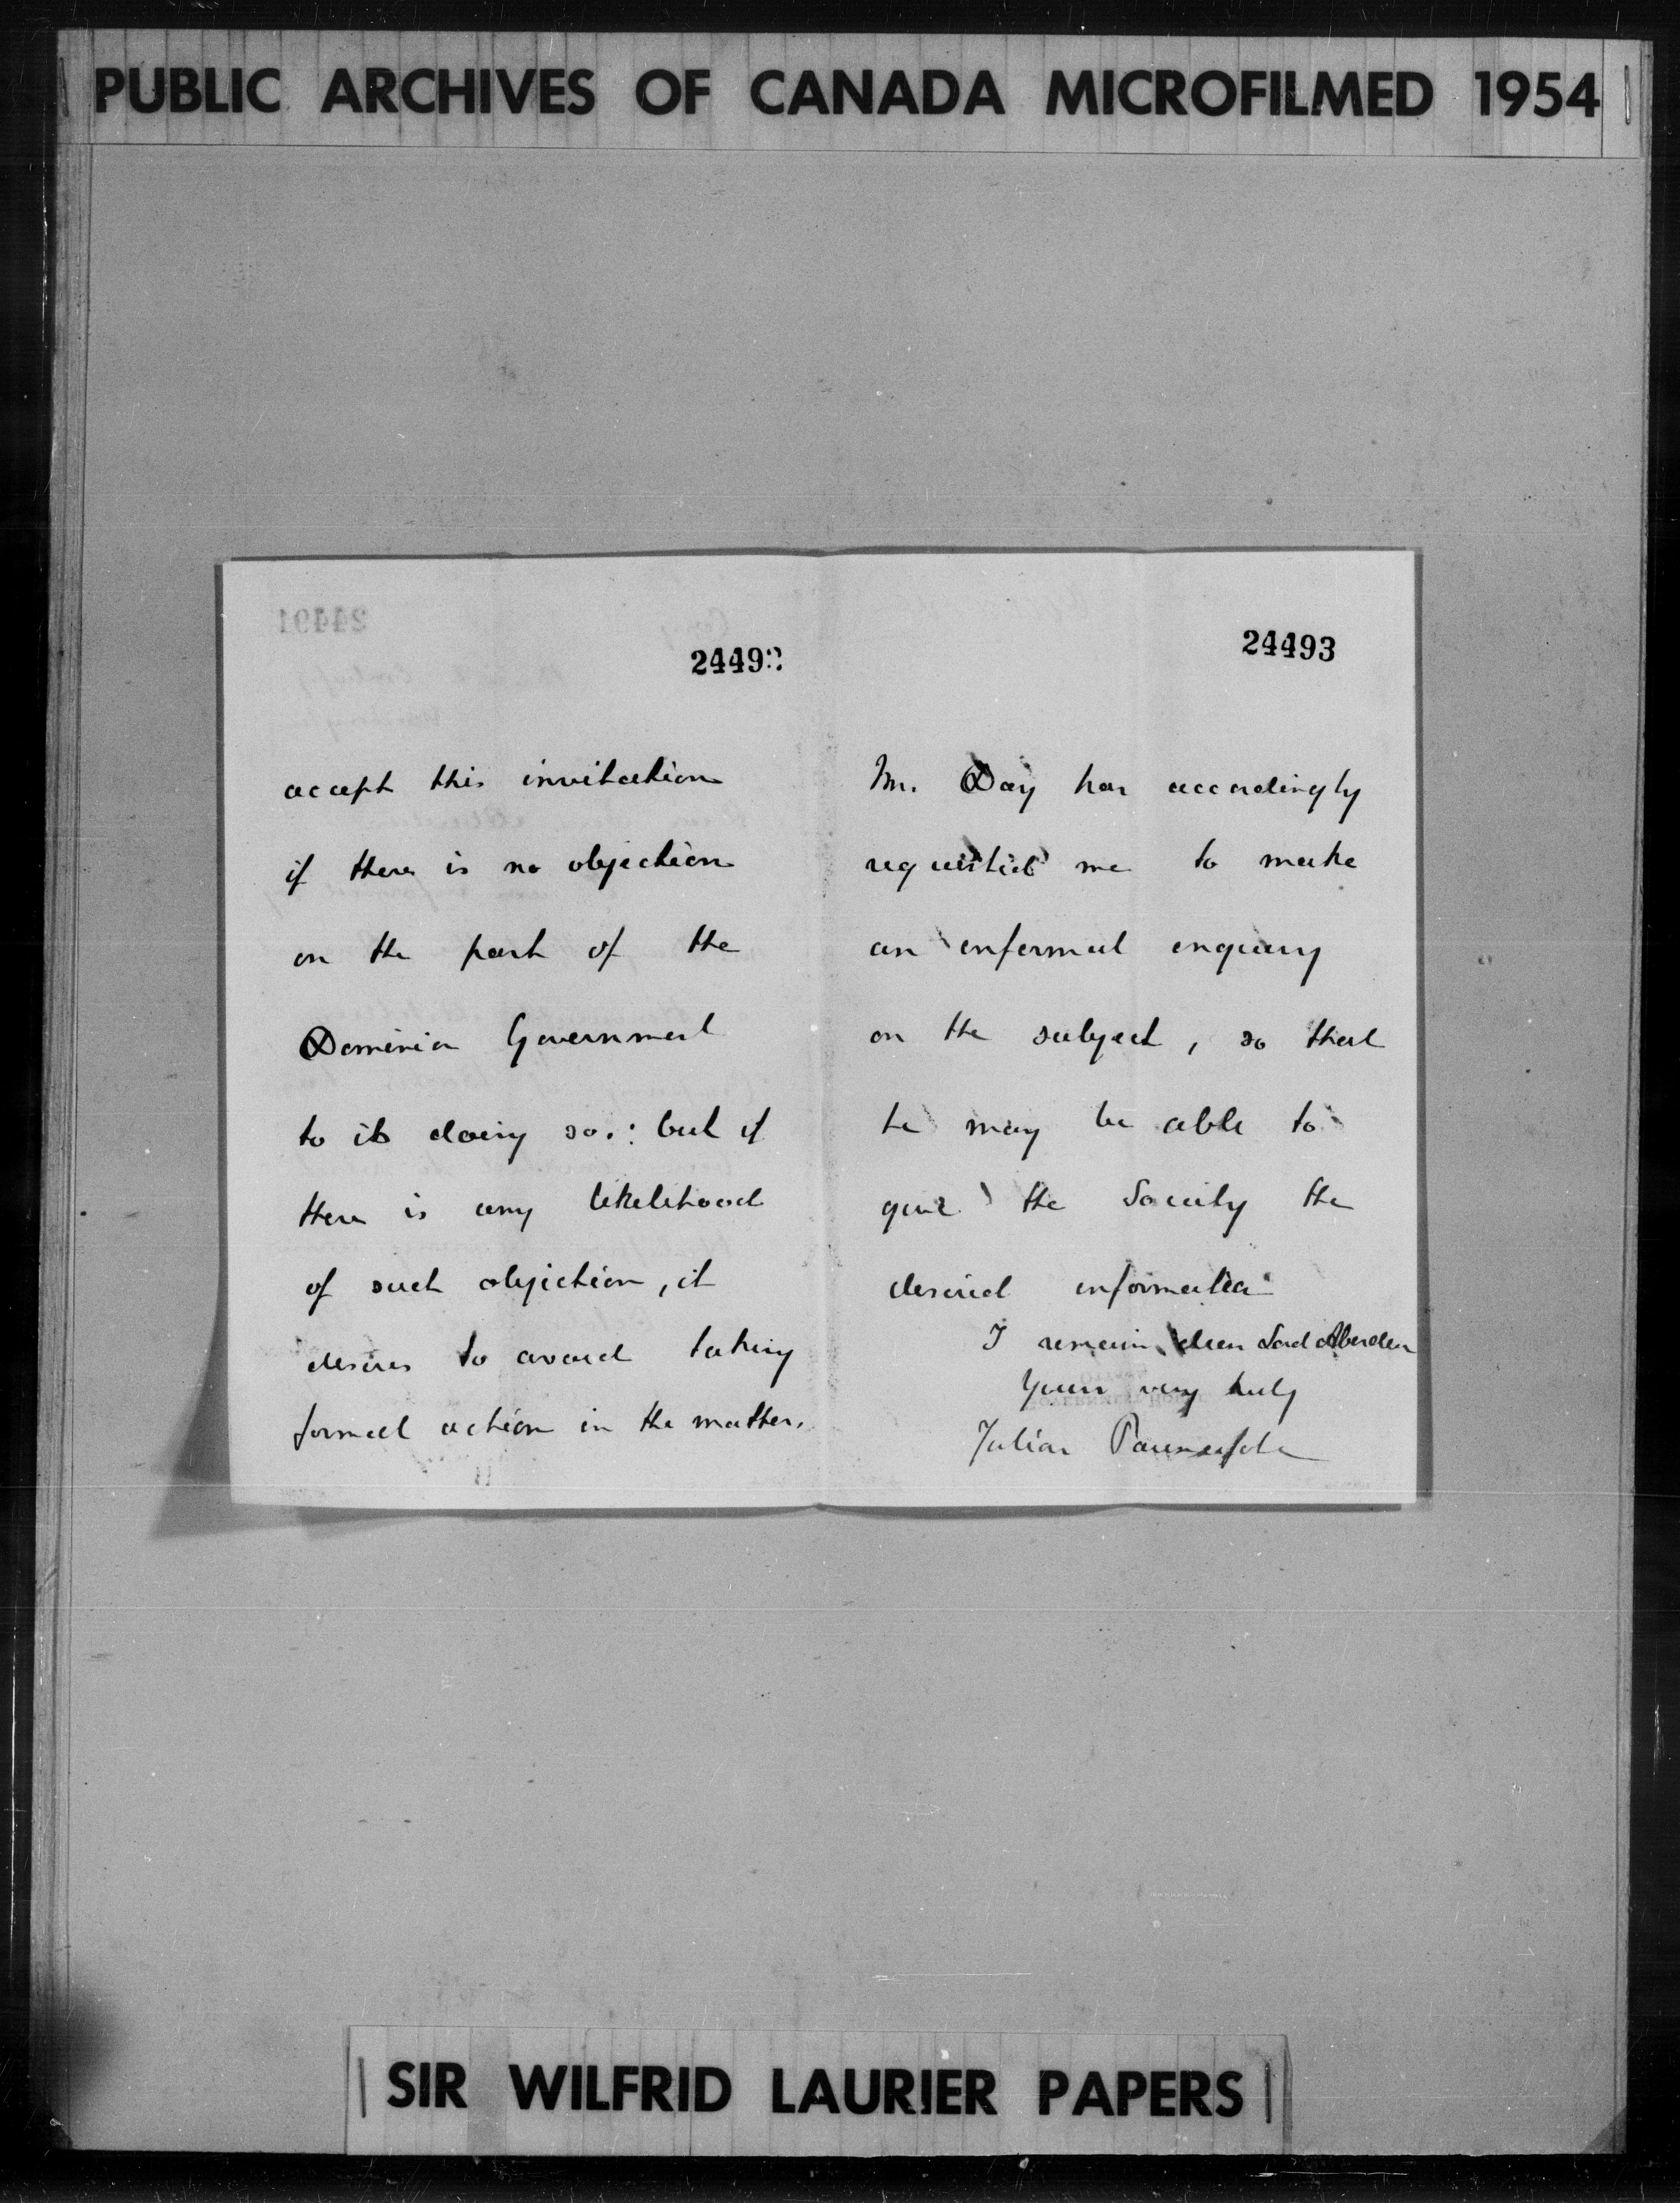 PUBLIC ARCHIVES OF CANADA MICROFILMED 1954
24491
24492
accept this invitation
if there is no objection
on the part of the
Dominion Government
to its doing so: but if
there is any likelihood
of such objection, it
desires to avoid taking
formal action in the matter.
24493
Mr. Day has accordingly
requested me to make
an informal enquiry
on the subject, so that
he may be able to
give the Society the
desired information
I remain, dear Lord Aberdeen
Yours very truly
Julian Pauncefote
SIR WILFRID LAURIER PAPERS